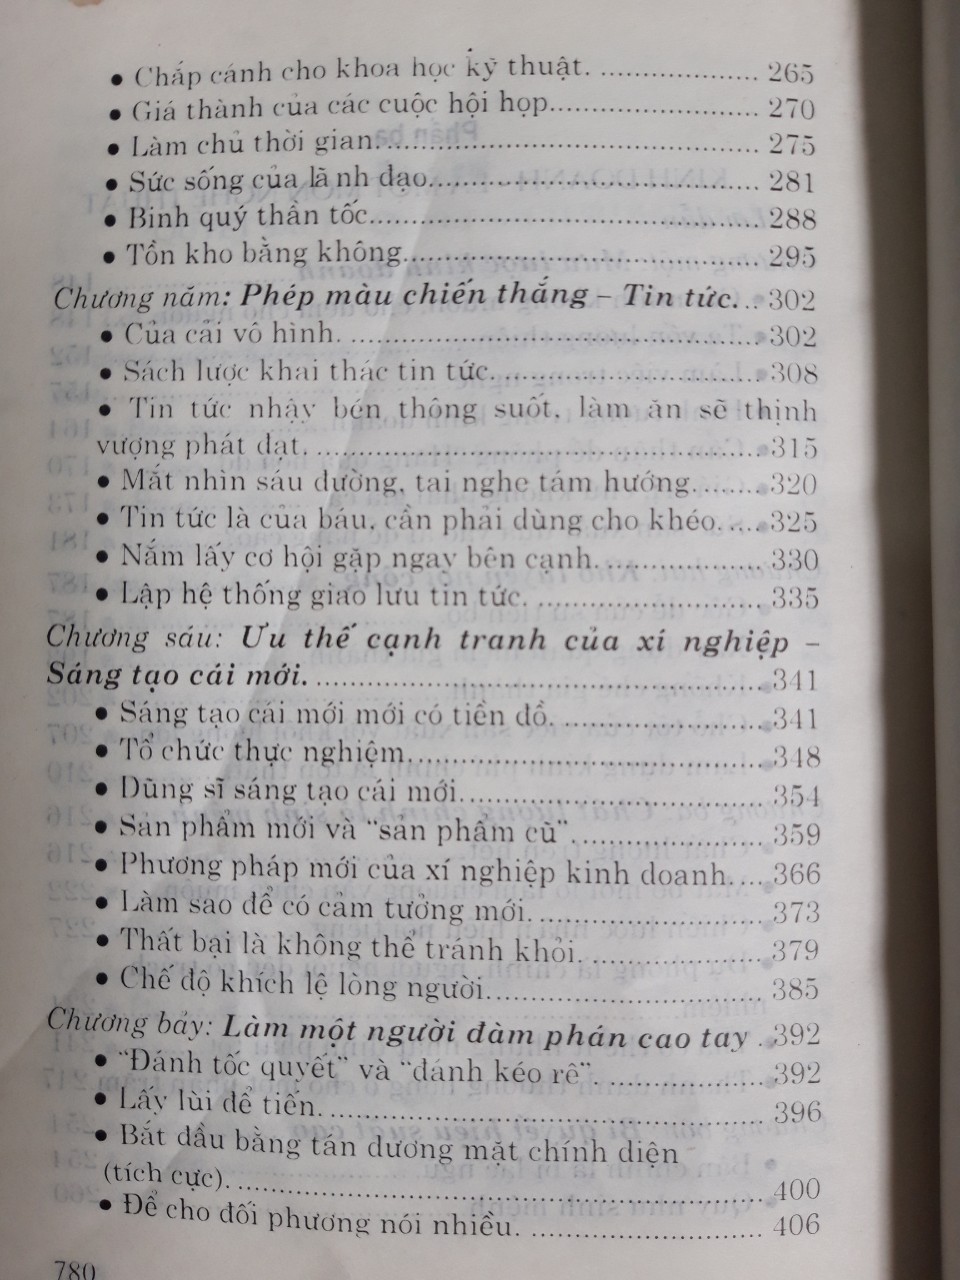 • Chắp cánh cho khoa học kỹ thuật. .................... 265
• Giá thành của các cuộc hội họp.......................... 270
• Làm chủ thời gian................................................ 275
• Sức sống của lã nh đạo......................................... 281
• Binh quý thần tốc................................................. 288
• Tồn kho bằng không............................................ 295
Chương năm: Phép màu chiến thắng – Tin tức. .. 302
• Của cải vô hình. ................................................... 302
• Sách lược khai thác tin tức. ................................ 308
• Tin tức nhậy bén thông suốt, làm ăn sẽ thịnh
vượng phát đạt. ....................................................... 315
• Mắt nhìn sáu đường, tai nghe tám hướng. ....... 320
• Tin tức là của báu, cần phải dùng cho khéo. .... 325
• Nắm lấy cơ hội gặp ngay bên cạnh. ................... 330
• Lập hệ thống giao lưu tin tức. ........................... 335
Chương sáu: Ưu thế cạnh tranh của xí nghiệp –
Sáng tạo cái mới. ..................................................... 341
• Sáng tạo cái mới mới có tiền đồ. ........................ 341
• Tổ chức thực nghiệm. .......................................... 348
• Dũng sĩ sáng tạo cái mới. .................................... 354
• Sản phẩm mới và “sản phẩm cũ”. ...................... 359
• Phương pháp mới của xí nghiệp kinh doanh. ... 366
• Làm sao để có cảm tưởng mới. ........................... 373
• Thất bại là không thể tránh khỏi. ..................... 379
• Chế độ khích lệ lòng người. ................................ 385
Chương bảy: Làm một người đàm phán cao tay . 392
• “Đánh tốc quyết” và “đánh kéo rê”. .................... 392
• Lấy lùi để tiến. ..................................................... 396
• Bắt đầu bằng tán dương mặt chính diện
(tích cực). ................................................................. 400
• Để cho đối phương nói nhiều. ............................ 406
780